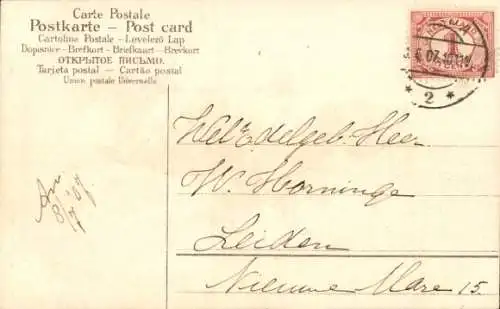 Carte Postale
Postkarte - Post card
Cartolina Postale - Levelező Lap
Dopisnice - Brefkort - Briefkaart - Brevkort
ОТКРЫТОЕ ПИСЬМО.
Tarjeta postal - Cartão postal
Union postale Universelle
WelEdelgeb. Heer
W. Horninge
Leiden
Nieuwe Mare 15.
8/7 '07
1
* 2 *